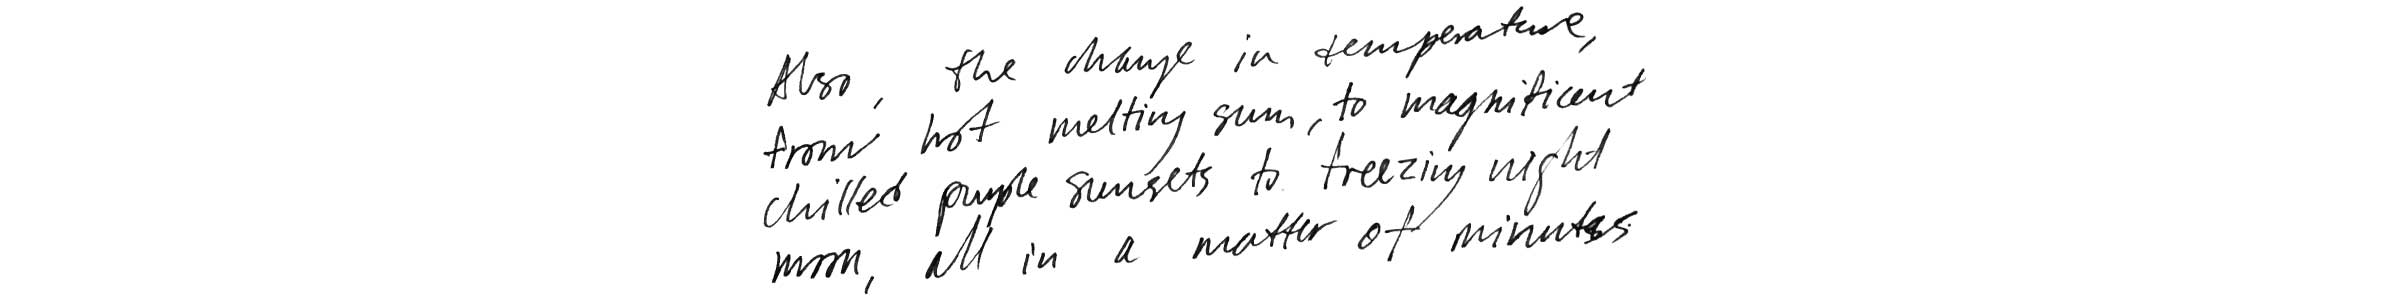 Also, the change in temperature,
from hot melting sun, to magnificent
chilled purple sunsets to freezing night
moon, all in a matter of minutes.